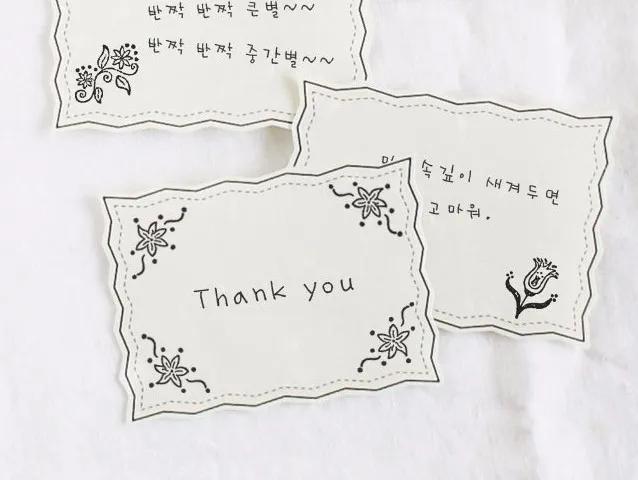 반짝 반짝 큰별~~
반짝 반짝 중간별~~
속깊이 새겨두면
고마워.
Thank you